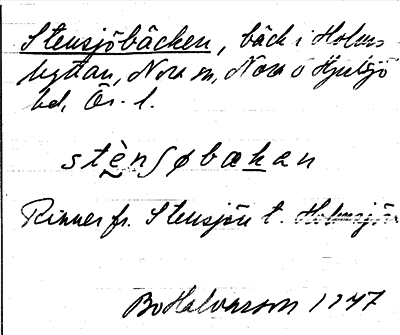 Stensjöbäcken, bäck i Holms
bydan, Nora sn, Nora o Hjulsjö
bd, Ör. l.
stèn∫øbækan
Rinner fr. Stensjön t. Holmsjön
Bo Halvarsson 1947